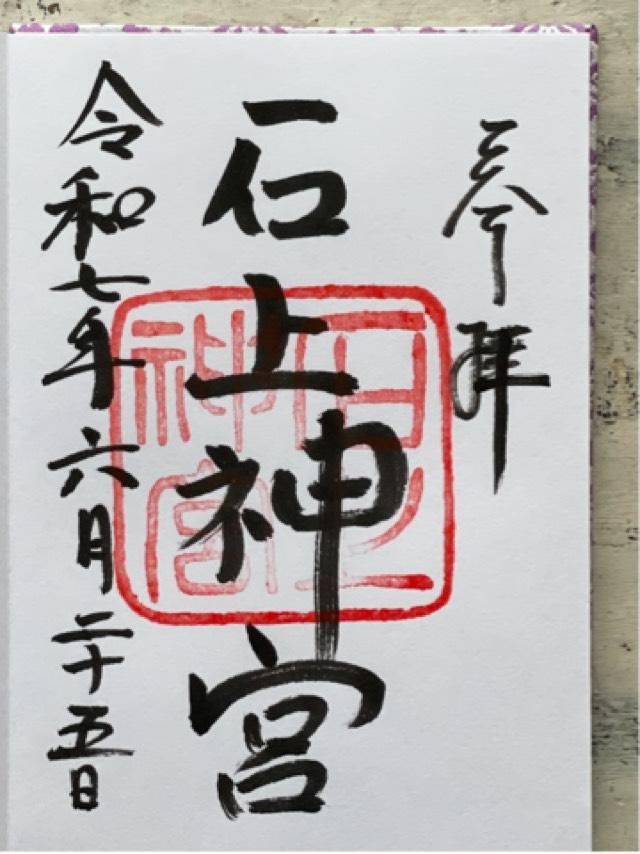 奉拝
石上神宮
石上神宮
令和七年六月二十五日